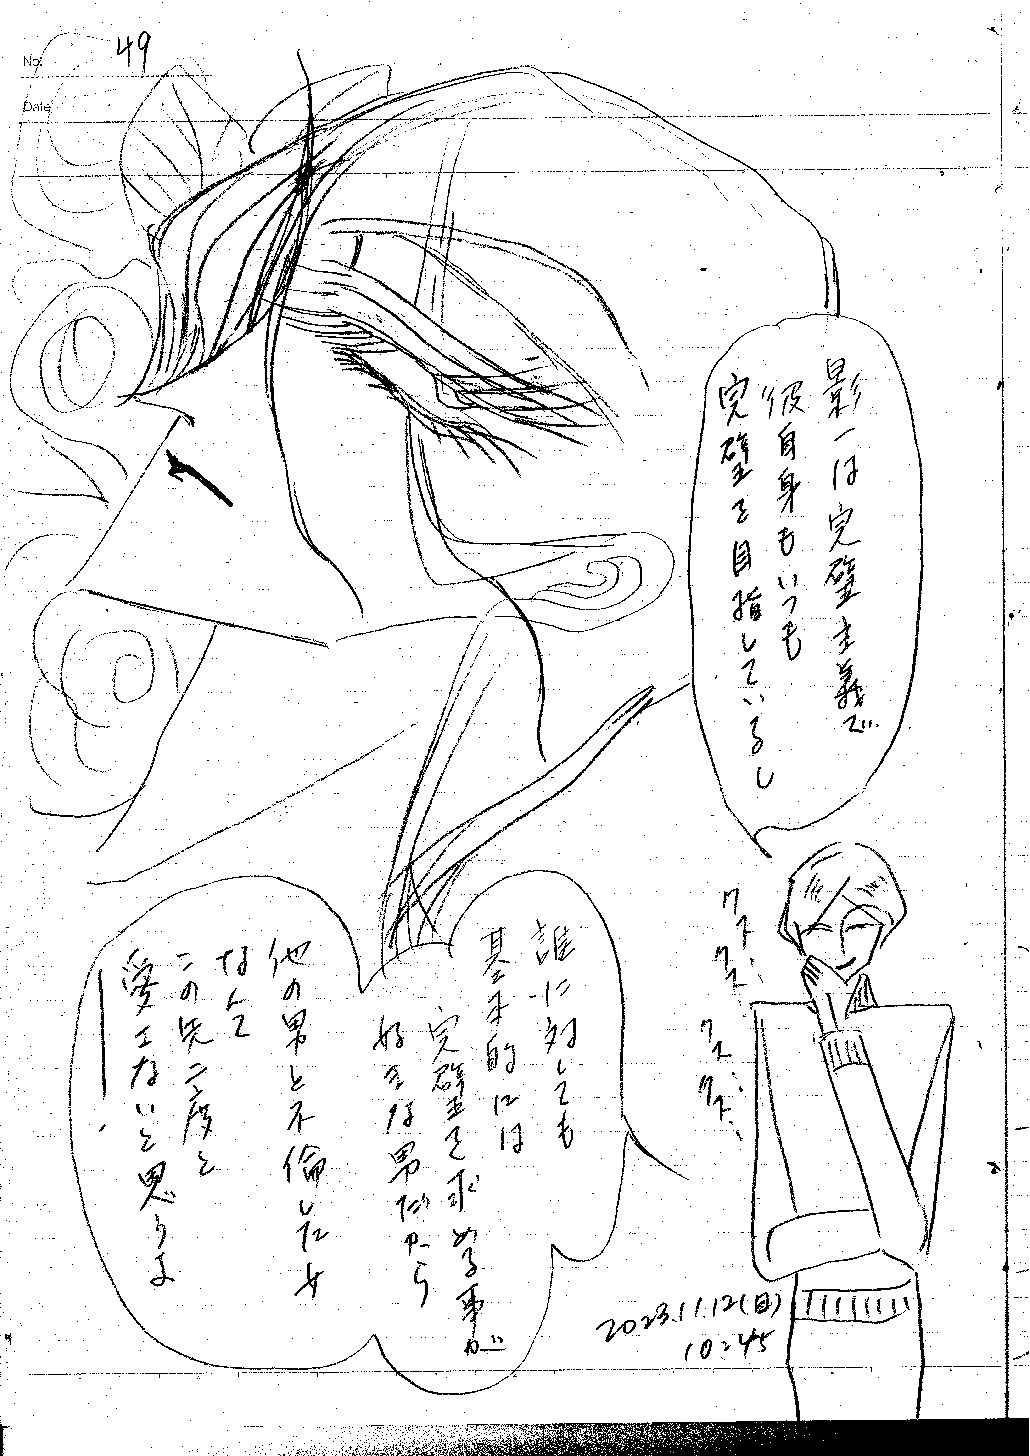 No.
49
Date
影一は完璧主義で
彼自身もいつも
完璧を目指しているし
クスクス
クスクス
誰に対しても
基本的には
完璧を求める事が
好きな男だから
他の男と不倫した女
なんて
この先二度と
愛エないと思うよ
2023.11.12(日)
10:45